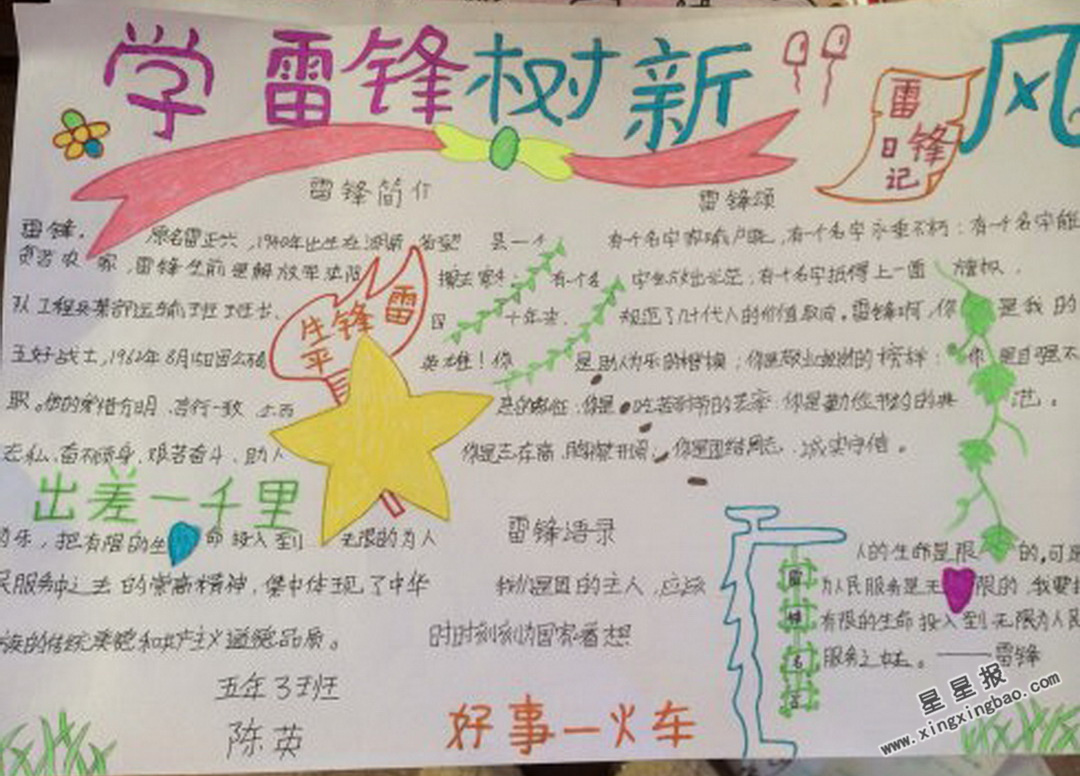 学雷锋树新风
雷锋日记
雷锋简介
雷锋颂
雷锋,原名雷正兴,1940年出生在湖南
是一个
有个名字家喻户晓,有一个名字永垂不朽;有一个名字能
贫苦农家,雷锋生前是解放军沈阳
擦去
有个名字
放出光茫;有个名字抵得上一面旗帜,
队工程兵某部运输班班长、
四十年来,
规范了几代人的价值取向。雷锋啊,你是我的
雷锋生平
五好战士,1962年8月15日因公
英雄!你是助人为乐的楷模;你是敬业
的榜样;你是自强不
职。他的爱憎分明、言行一致
你是吃苦耐劳的
你是勤俭节约的典范。
无私、奋不顾身、艰苦奋斗、助人
你是志存高
你是团结同志、诚实守信。
出差一千里
为乐,把有限的生命投入到无限的为人
民服务中之去的崇高精神,集中体现了中华
族的传统美德和共产主义道德品质。
五年3班
陈英
雷锋语录
我们是国的主人,应该
时时刻刻为国家着想
好事一火车
雷锋名言
人的生命是限的,可是
为人民服务是无限的,我要把
有限的生命投入到无限为人民
服务之中去。——雷锋
星星报
www.xingxingbao.com